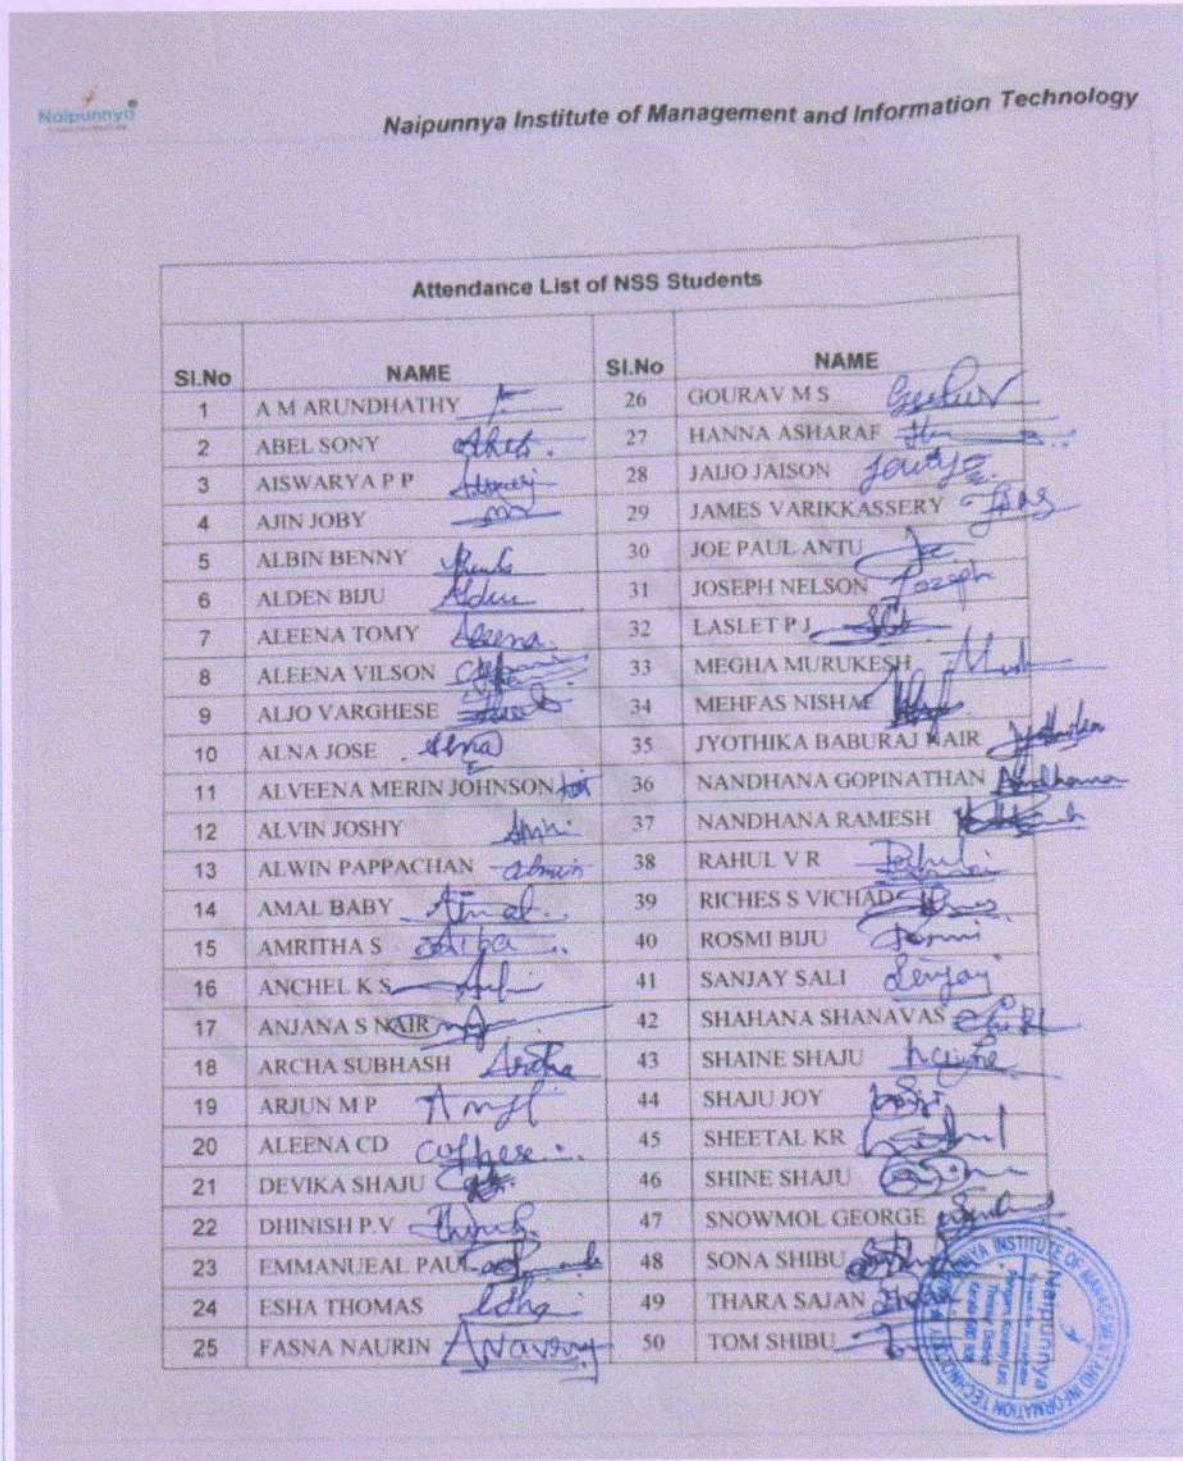 Naipunnya
Naipunnya Institute of Management and Information Technology
Attendance List of NSS Students
SI.No NAME SI.No NAME
1 A M ARUNDHATHY 26 GOURAV M S
2 ABEL SONY 27 HANNA ASHARAF
3 AISWARYA P P 28 JAIJO JAISON
4 AJIN JOBY 29 JAMES VARIKKASSERY
5 ALBIN BENNY 30 JOE PAUL ANTU Joe
6 ALDEN BIJU 31 JOSEPH NELSON Joseph
7 ALEENA TOMY Aleena 32 LASLET P J
8 ALEENA VILSON 33 MEGHA MURUKESH
9 ALJO VARGHESE 34 MEHFAS NISHAF
10 ALNA JOSE Alna 35 JYOTHIKA BABURAJ NAIR
11 ALVEENA MERIN JOHNSON 36 NANDHANA GOPINATHAN
12 ALVIN JOSHY 37 NANDHANA RAMESH
13 ALWIN PAPPACHAN 38 RAHUL V R
14 AMAL BABY Amal 39 RICHES S VICHAD
15 AMRITHA S 40 ROSMI BIJU Rosmi
16 ANCHEL K S 41 SANJAY SALI Sanjay
17 ANJANA S NAIR 42 SHAHANA SHANAVAS
18 ARCHA SUBHASH Archa 43 SHAINE SHAJU
19 ARJUN M P 44 SHAJU JOY
20 ALEENA CD 45 SHEETAL KR
21 DEVIKA SHAJU 46 SHINE SHAJU
22 DHINISH P.V 47 SNOWMOL GEORGE
23 EMMANUEAL PAUL 48 SONA SHIBU
24 ESHA THOMAS 49 THARA SAJAN
25 FASNA NAURIN 50 TOM SHIBU
INSTITUTE OF MANAGEMENT AND INFORMATION
Naipunnya